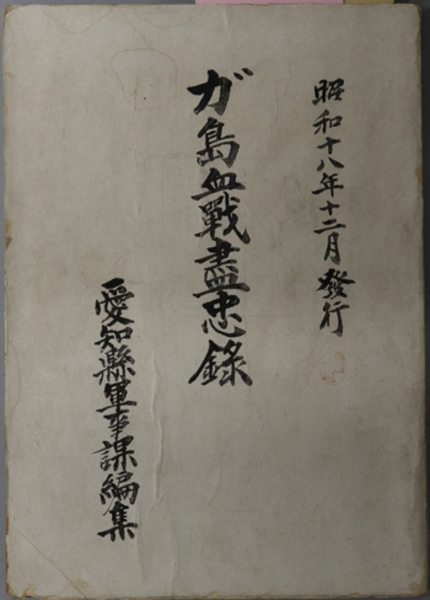 昭和十八年十二月發行
ガ島血戰盡忠錄
愛知縣軍事課編集